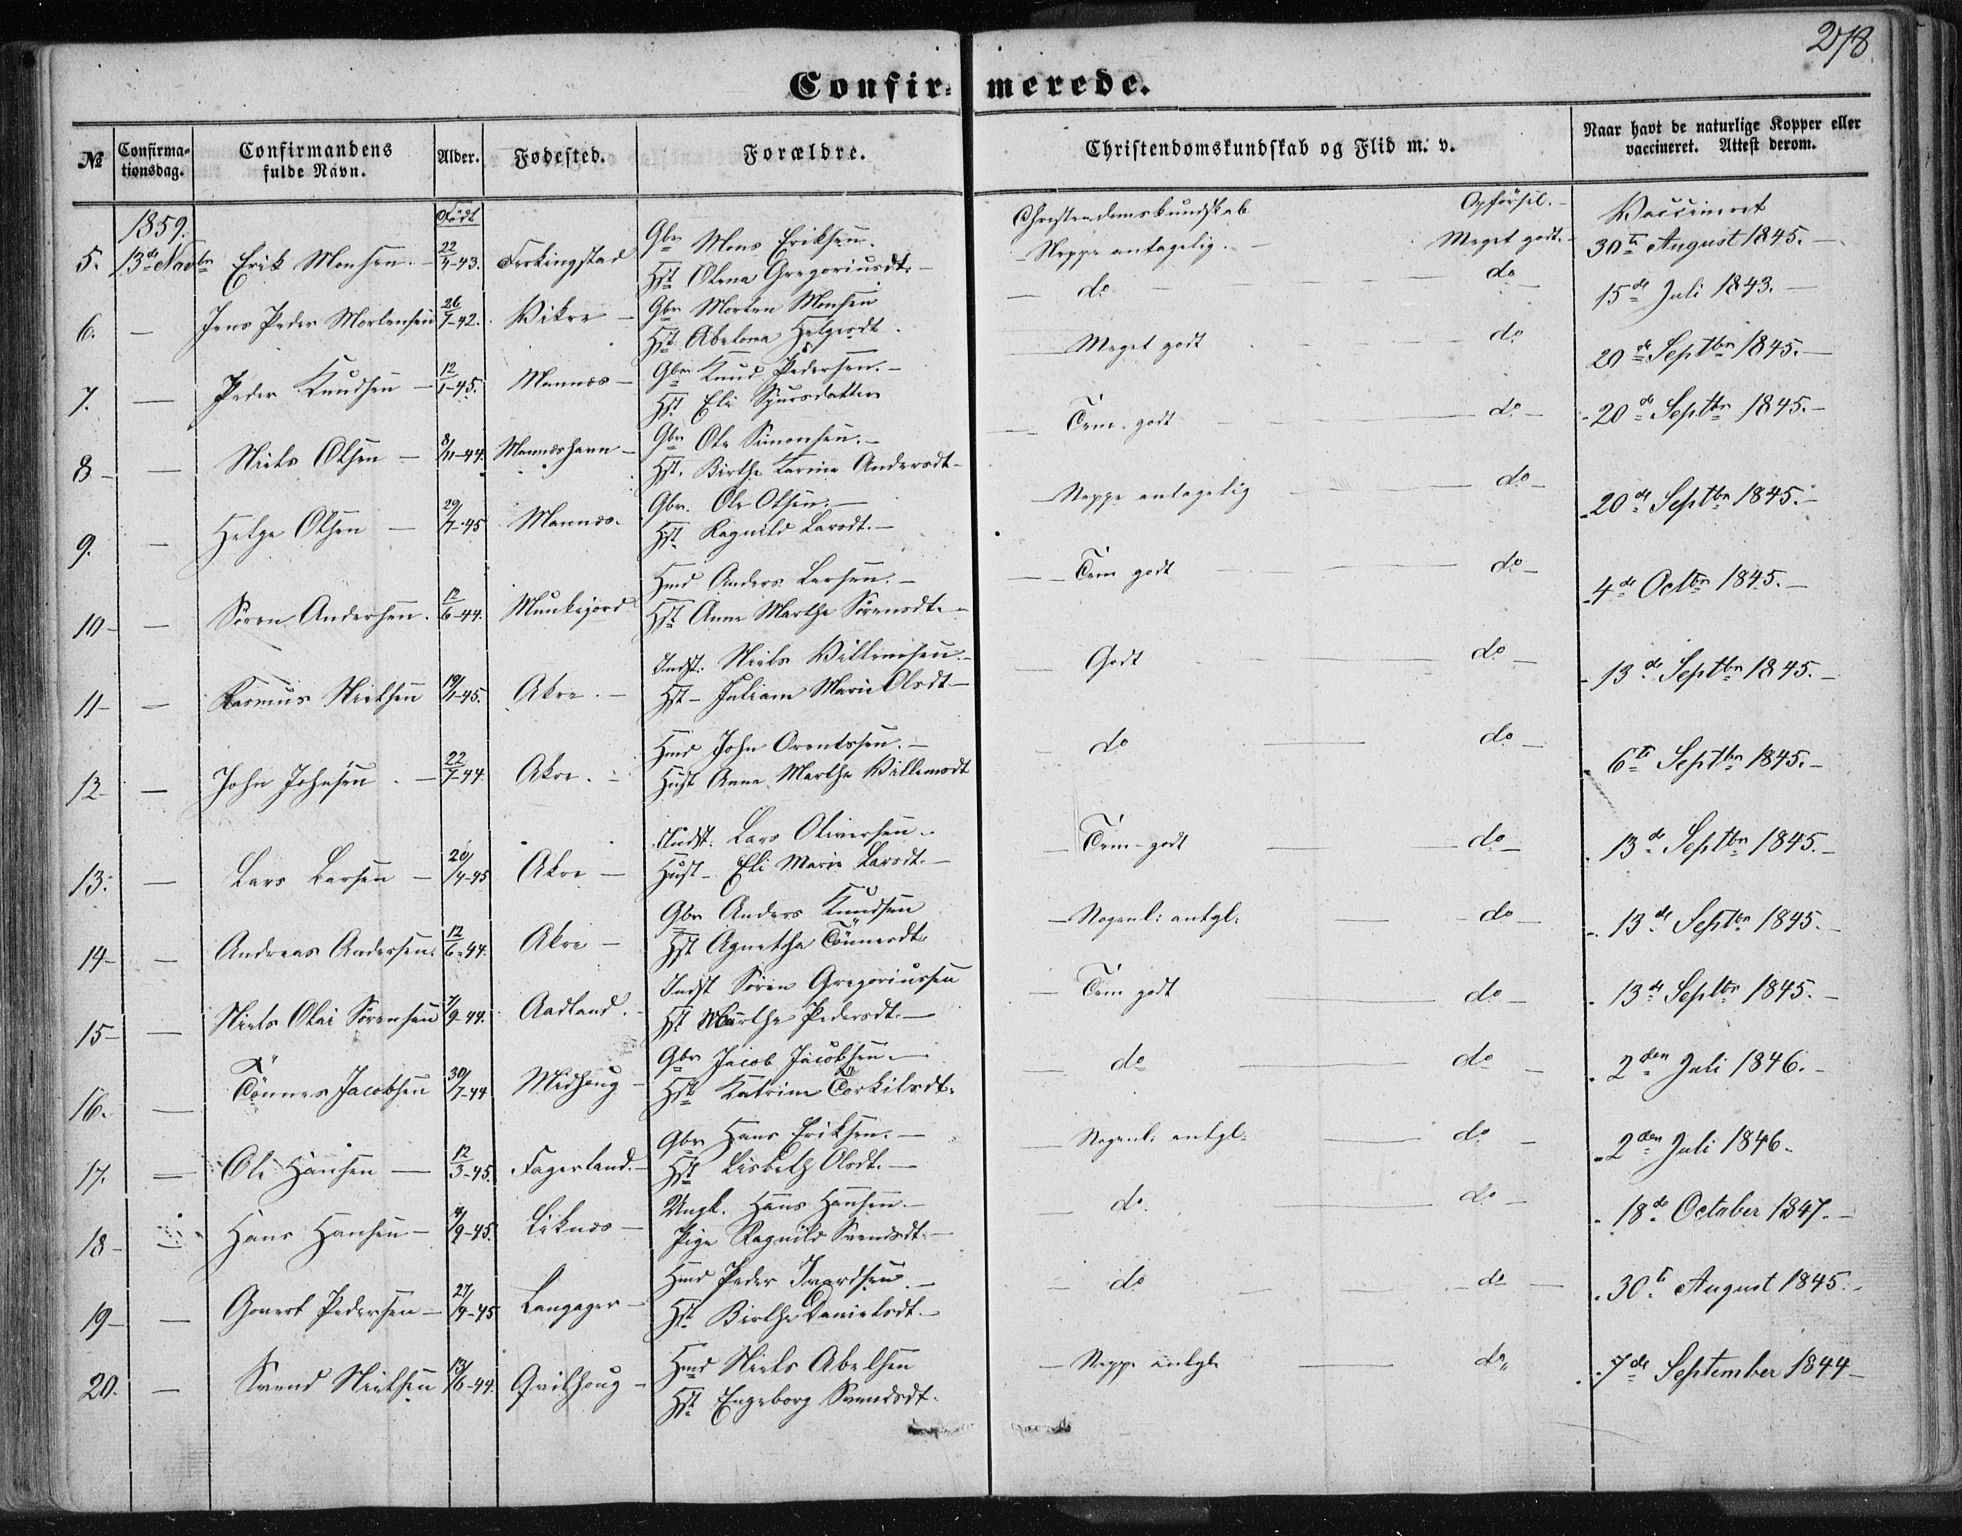 278
Confirmerede.
№ Confirmationsdag. Confirmandens fulde Navn. Alder. Fødested. Forældre. Christendomskundskab og Flid m. v. Naar havt de naturlige Kopper eller vaccineret. Attest derom.
1859. Födt Christendomskundskab Opförsel. Vaccineret
5. 13de Novbr Erik Monsen 22/4-43. Ferkingstad Gbr Mons Eriksen. Neppe antagelig. Meget godt. 30te August 1845.
Hst. Olena Gregoriusdt.
6. — Jens Peder Mortensen 26/7-42. Vikre Gbr Morten Monsen do do 15de Juli 1843.
Hst. Abelona Helgesdt.
7. — Peder Knudsen 12/1-45. Mannes Gbr Knud Pedersen. Meget godt do 20de Septbr 1845.
Hst. Eli Sjursdatter
8 — Niels Olsen 8/11-44. Manneshavn Gbr Ole Simonsen. Tem. godt do 20de Septbr 1845.
Hst. Birthe Karine Andersdt.
9. — Helge Olsen 29/7-45 Mannes. Gbr. Ole Olsen. Neppe antagelig do 20de Septbr 1845.
Hst Ragnild Larsdt.
10 — Sören Andersen. 12/6-44. Munkejord Hmd Anders Larsen. Tem godt do 4de Octbr 1845.
Hst Anne Marthe Sörensdt.
11 — Rasmus Nielsen 19/1-45. Akre. Indst. Niels Villemsen. Godt do 13de Septbr 1845.
Hst Juliane Marie Olsdt
12 — John Johnsen 22/7-44. Akre. Hmd John Orentssen. do do 6te Septbr 1845.
Hust Anne Marthe Villemsdt
13. — Lars Larsen 20/4-45 Akre Indst. Lars Oliversen. Tem-godt do 13de Septbr 1845.
Hust Eli Marie Larsdt.
14 — Andreas Andersen. 12/6-44. Akre Gbr Anders Knudsen Nogenl: antgl: do 13de Septbr 1845.
Hst Agnetha Tönnesdt.
15 — Niels Olai Sörensen 7/9-44. Aadland. Indst Sören Gregoriussen Tem godt do 13de Septbr 1845.
Hst Marthe Pedersdt.
16. — Tönnes Jacobsen 30/7-44 Midhaug Gbr Jacob Jacobsen. do do 2den Juli 1846.
Hst Katrine Torkilsdt.
17. — Ole Hansen 12/3-45. Fagerland. Gbr Hans Eriksen. Nogenl: antgl: do 2den Juli 1846.
Hst Lisbeth Olsdt.
18 — Hans Hansen 4/9-45. Liknes Ungk. Hans Hansen. do. do 18de October 1847.
Pige Ragnild Svendsdt.
19 — Govert Pedersen 27/4-45 Langager Hmd Peder Ivardsen. do do 30te August 1845.
Hst. Birthe Danielsdt.
20. — Svend Nielsen 13/6-44. Qvilhaug Hmd Niels Abelsen Neppe antgl. do 7de September 1844
Hst. Engeborg Svendsdt.